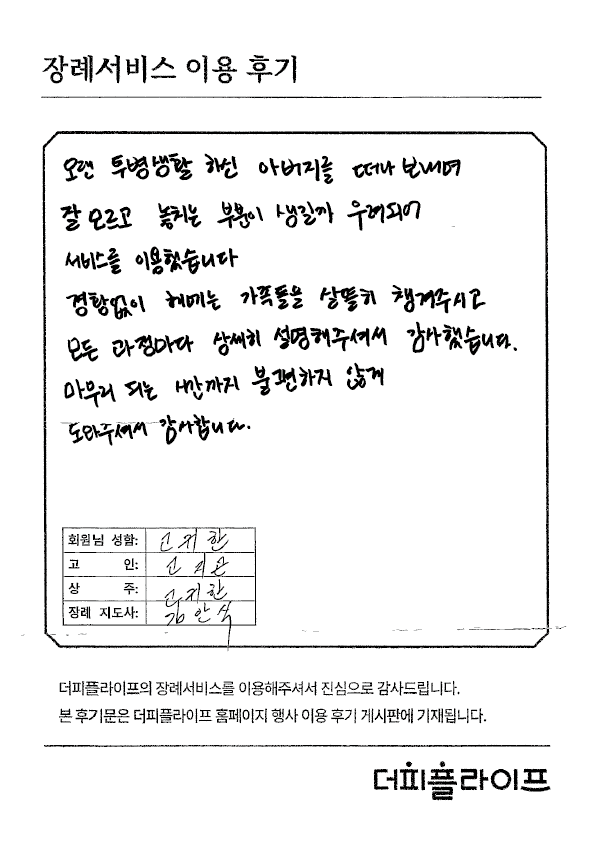 장례서비스 이용 후기
오랜 투병생활 하신 아버지를 떠나 보내며
잘 모르고 놓치는 부분이 생길까 우려되어
서비스를 이용했습니다
경황없이 헤메는 가족들을 살뜰히 챙겨주시고
모든 과정마다 상세히 설명해주셔서 감사했습니다.
마무리 되는 시간까지 불편하지 않게
도와주셔서 감사합니다.
회원님 성함: 고귀한
고 인: 고
상 주: 고귀한
장례 지도사: 김안식
더피플라이프의 장례서비스를 이용해주셔서 진심으로 감사드립니다.
본 후기문은 더피플라이프 홈페이지 행사 이용 후기 게시판에 기재됩니다.
더피플라이프